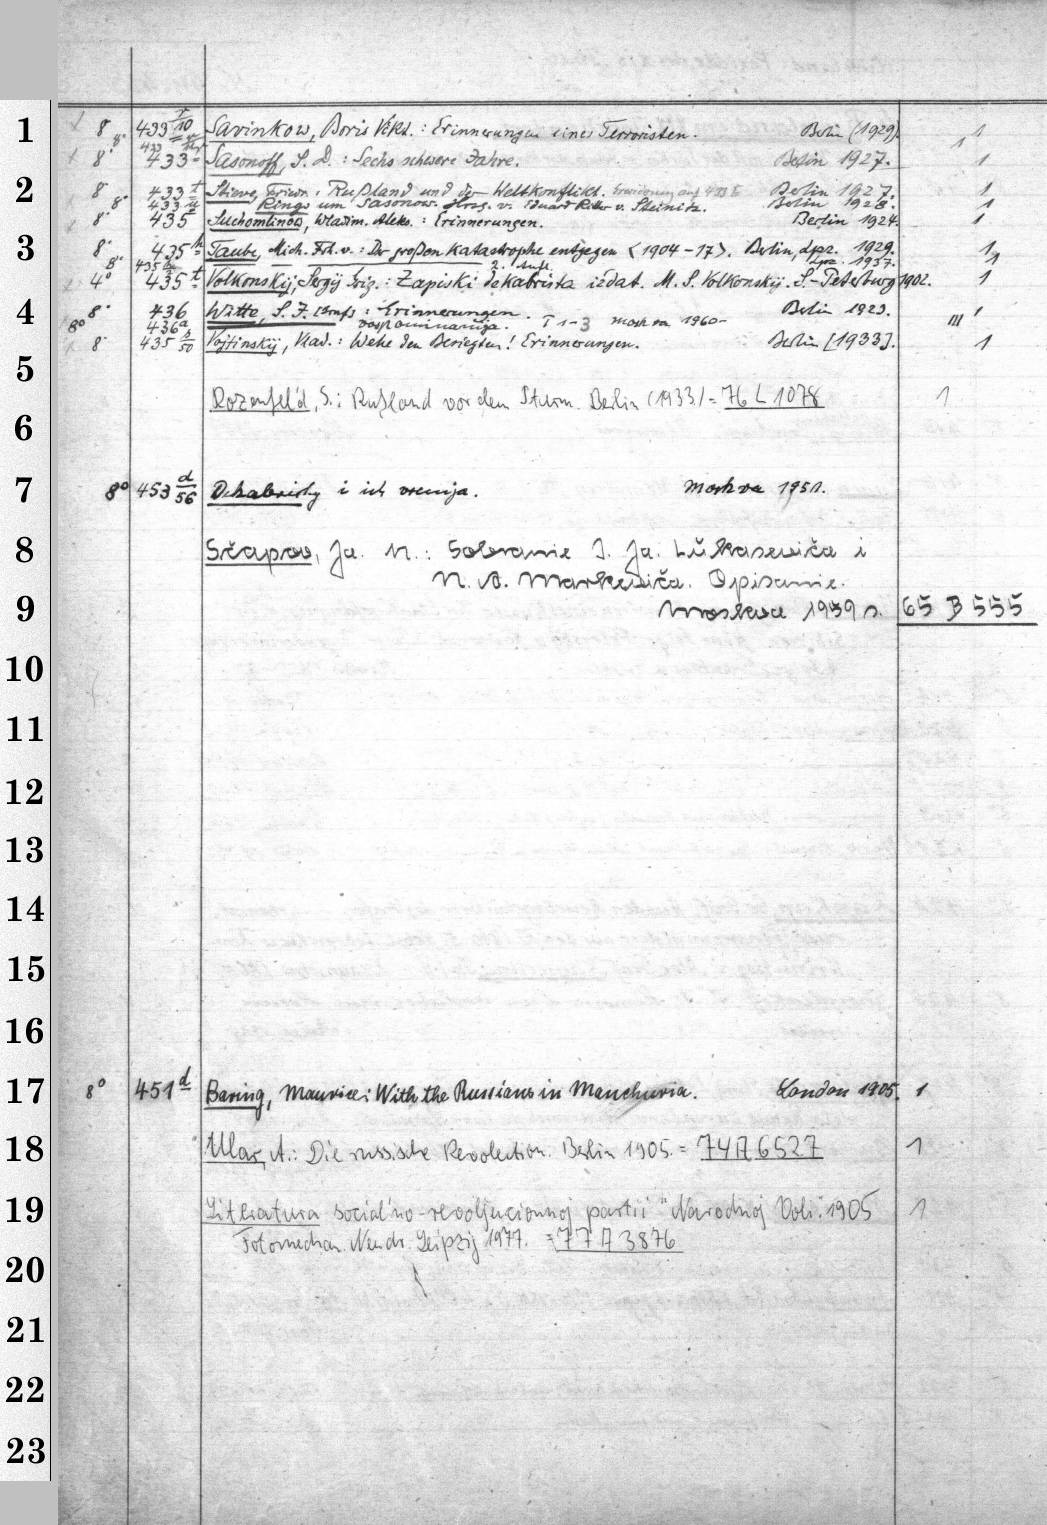 1 8° 433 r/10 Savinkow, Boris Vikt.: Erinnerungen eines Terroristen. Berlin (1929). 1
8° 433 Sasonoff, S. D.: Sechs schwere Jahre. Berlin 1927. 1
2 8° 433 t Stieve, Friedr.: Rußland und der Weltkonflikt. Berlin 1927. 1
8° 433 u Rings um Sasonow. Hrsg. v. Eduard Ritter v. Steinitz. Berlin 1928. 1
8° 435 Suchomlinow, Wladim. Aleks.: Erinnerungen. Berlin 1924. 1
3 8° 435 Taube, Mich. Frh. v.: Der großen Katastrophe entgegen <1904-17>. Berlin, Lpz. 1929. 1
8° 2. Aufl. Lpz. 1937. 1
4° 435 t Volkonskij, Sergij Grig.: Zapiski dekabrista izdat. M. S. Volkonskij. S-Peterburg 1902. 1
4 8° 436 Witte, S. J. Graf: Erinnerungen. Berlin 1923. 1
8° 436a vospominanija. T 1-3 Moskva 1960- III
8° 435 Vojtinskij, Vlad.: Wehe den Besiegten! Erinnerungen. Berlin [1933]. 1
5
Rozenfel'd, S.: Rußland vor dem Sturm. Berlin (1933.) = 76 L 1078 1
6
7 8° 453 d/56 Dekabristy i ich vremja. Moskva 1951.
8 Ščapov, Ja. N.: Sobranie I. Ja. Lukaševiča i
N. A. Markeviča. Opisanie.
9 Moskva 1959 65 B 555
10
11
12
13
14
15
16
17 8° 451 d Baring, Maurice: With the Russians in Manchuria. London 1905. 1
18 Ular, A.: Die russische Revolution. Berlin 1905. = 74 A 6527 1
19 Literatura social'no-revoljucionnoj partii "Narodnoj Voli". 1905 1
Fotomechan. Neudr. Leipzig 1977. = 77 A 3876
20
21
22
23